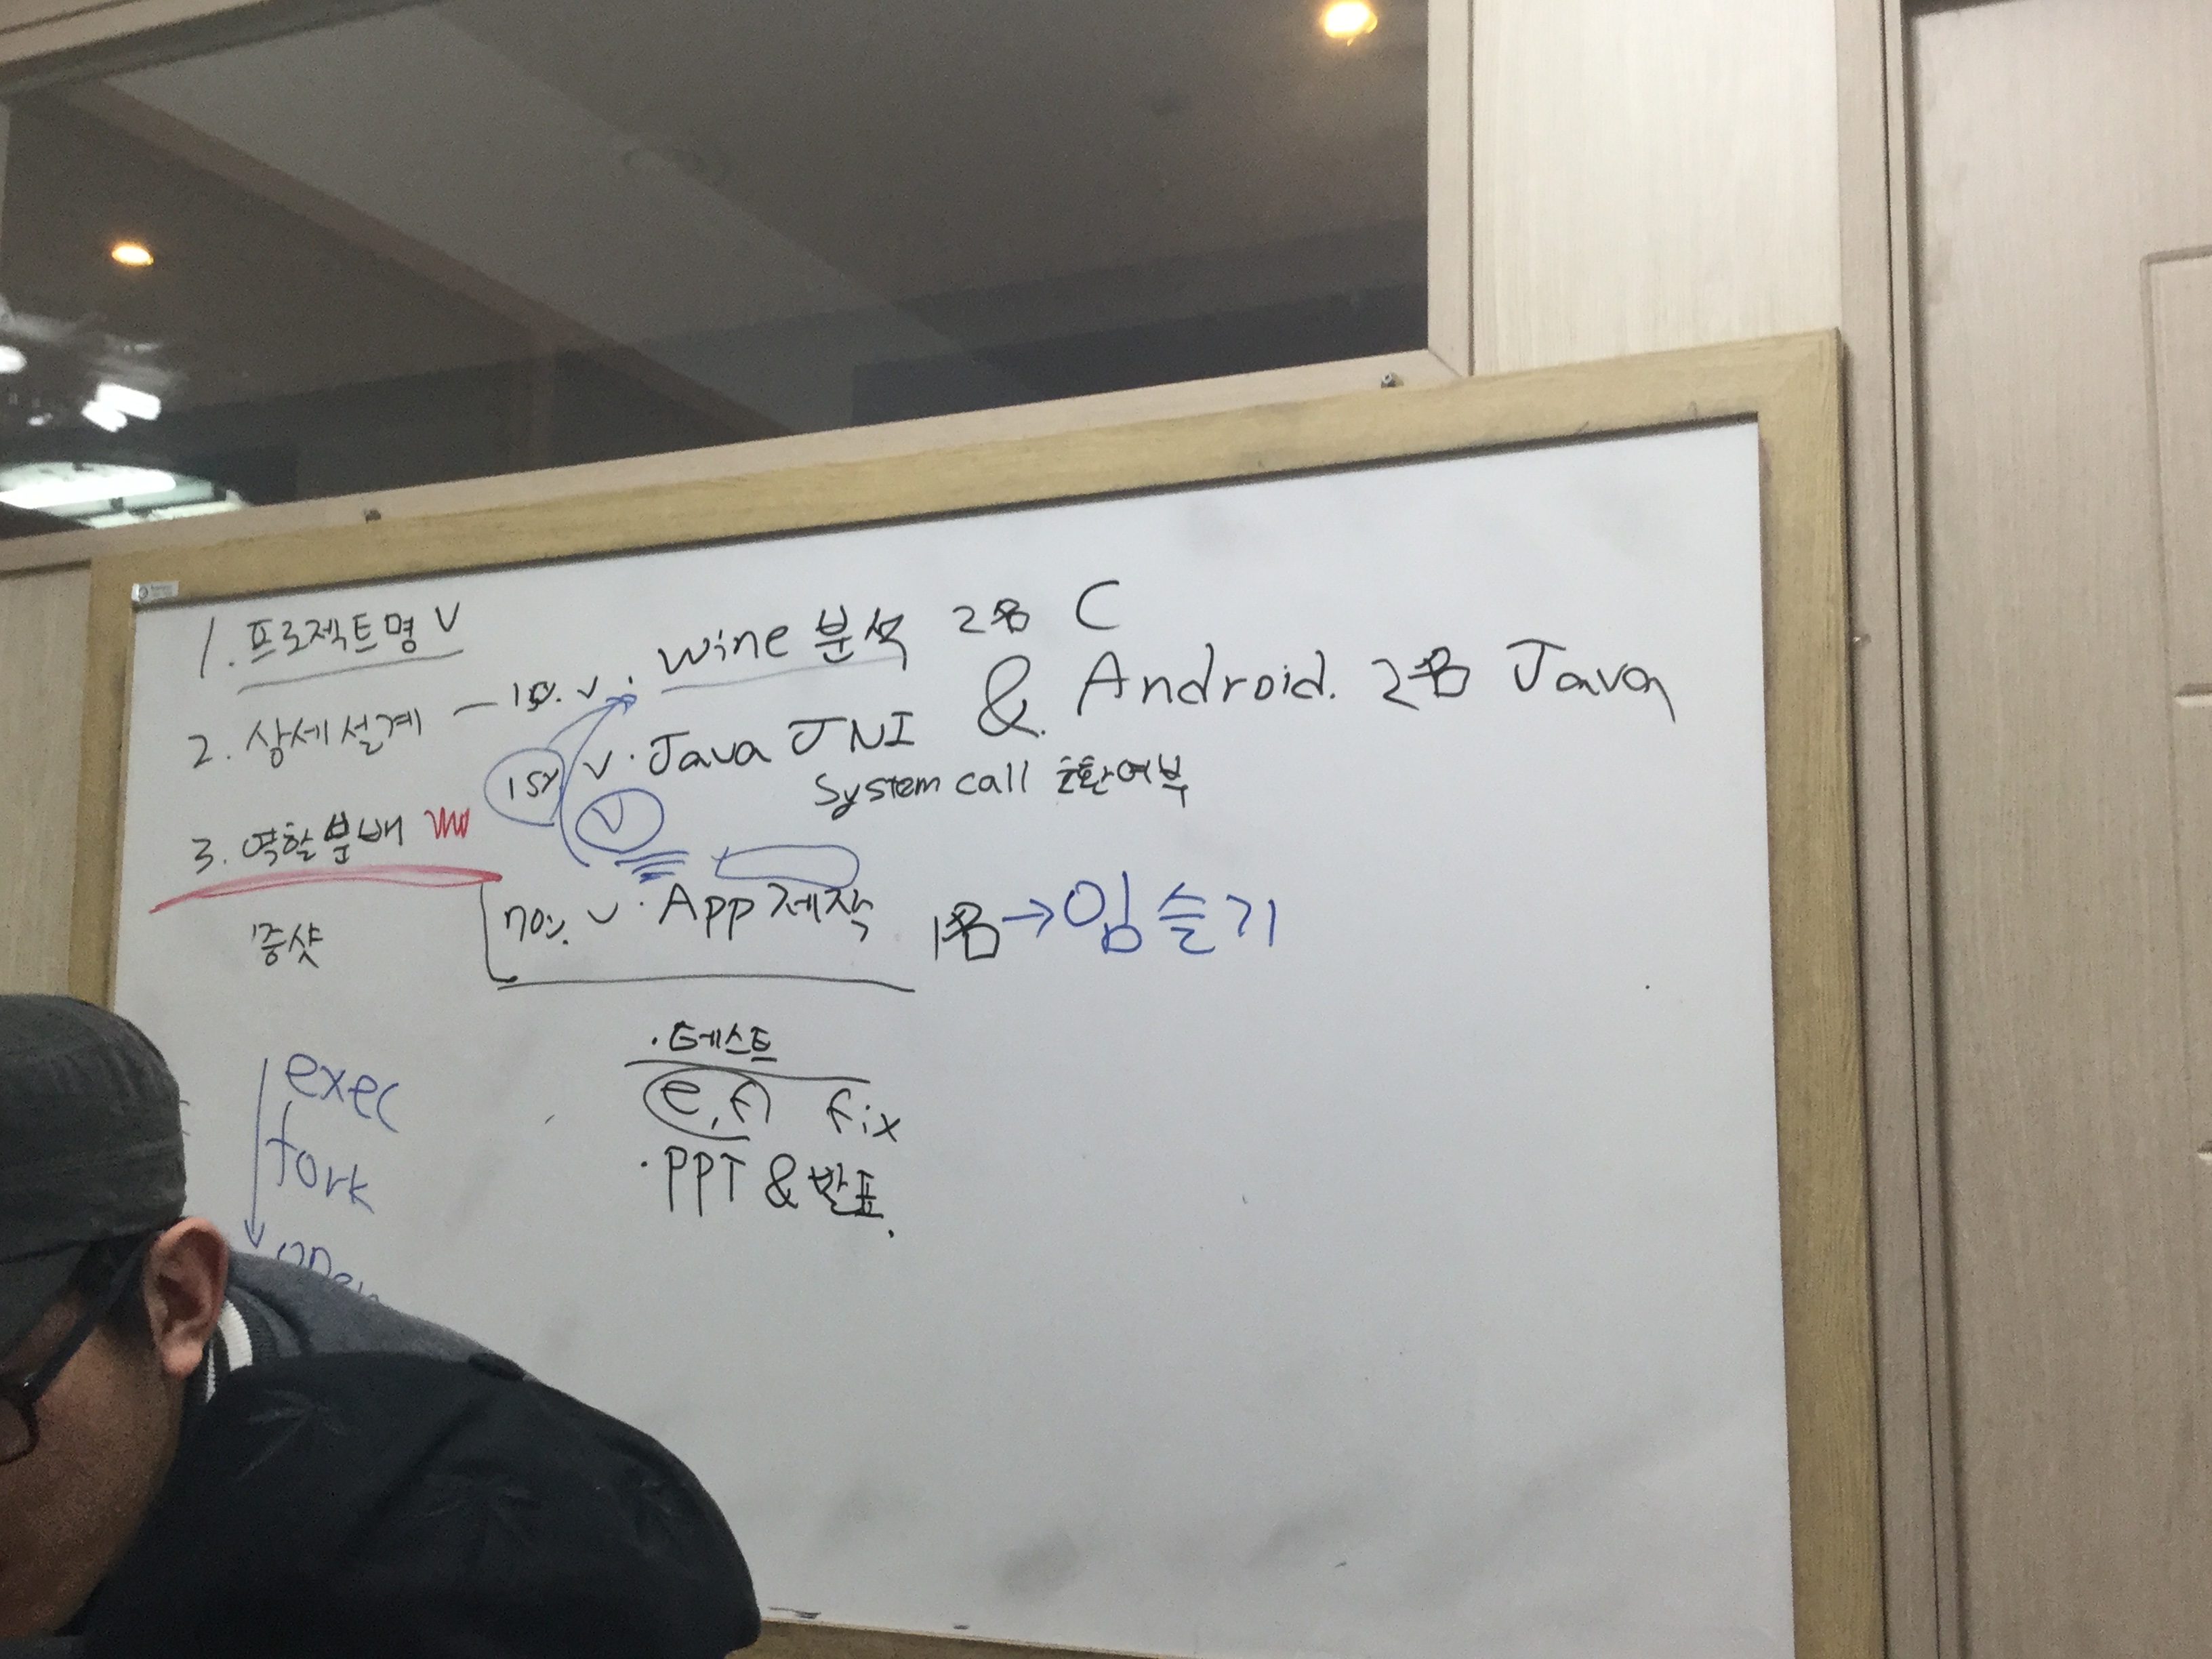 1. 프로젝트명 V
2. 상세설계 — 10. V · wine 분석 2명 C
& Android. 2명 Java
15% V · Java JNI
System call 호환여부
V
3. 역할분배
70%. V · App 제작 1명 → 임슬기
증샷
· 테스트
exec
e, fi fix
fork
· PPT & 발표.
open